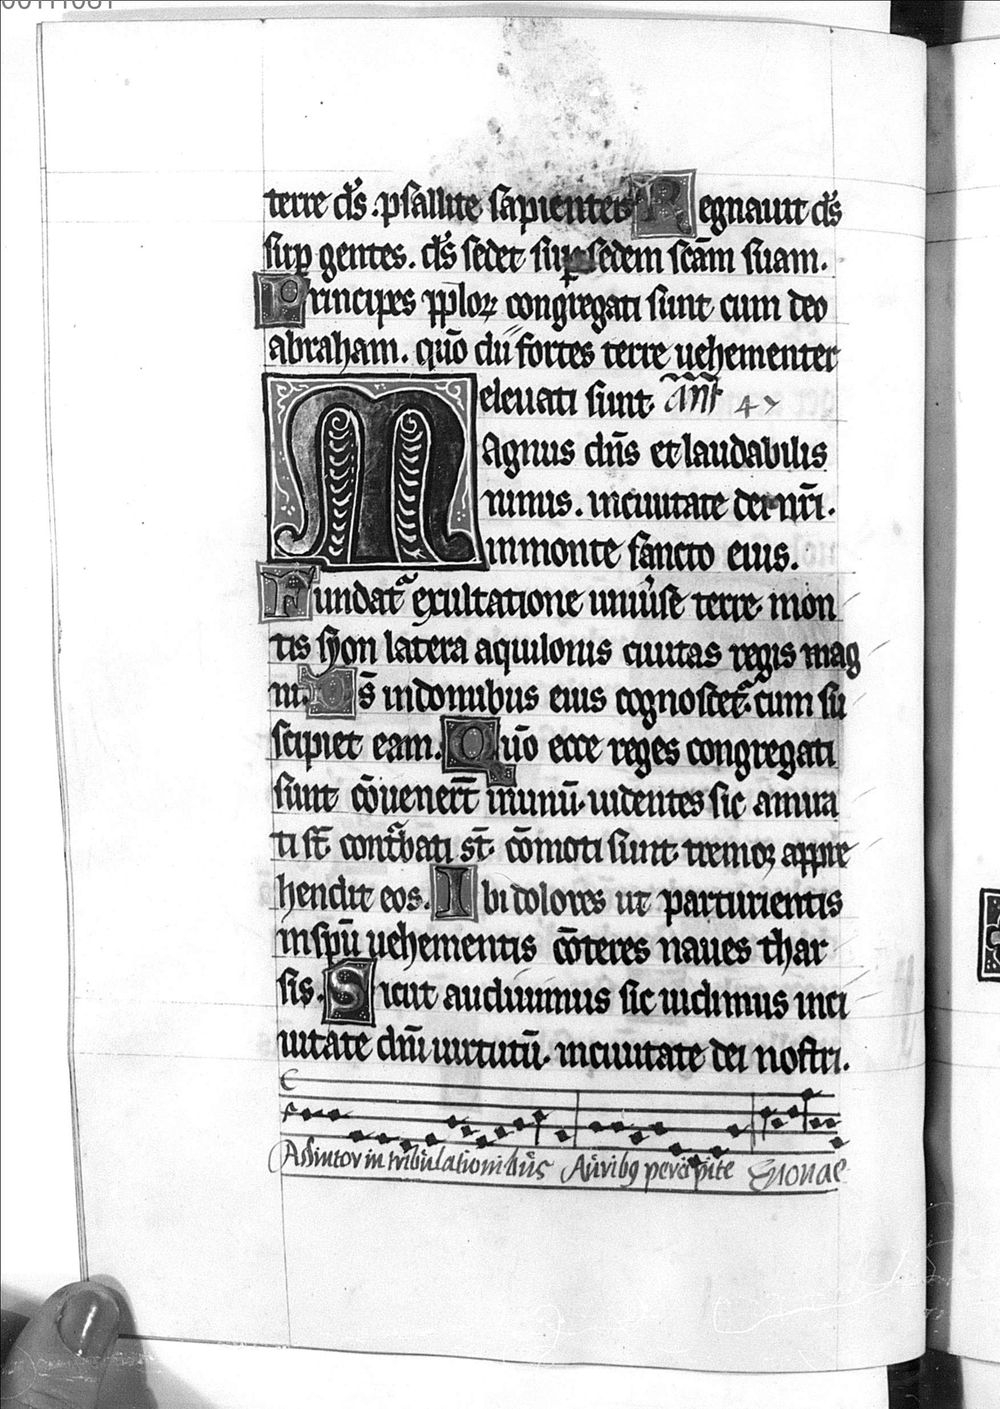 00111081
terre ds̄. psallite sapienter Regnauit ds̄
sup gentes. ds̄ sedet sup sedem scām suam.
Principes pplorꝝ congregati sunt cum deo
abraham. quō dii fortes terre uehementer
eleuati sunt. añ 47
Magnus dn̄s et laudabilis
nimis. inciuitate dei nr̄i.
inmonte sancto eius.
Fundat᷑ exultatione uniu̾se terre. mon
tis syon latera aquilonis ciuitas regis mag
ni. Ds̄ indomibus eius cognoscet᷑. cum su
scipiet eam. Quō ecce reges congregati
sunt cōuenert̄ inunū. uidentes sic amira
ti st̄ cont̾bati st̄. cōmoti sunt tremorꝫ appre
hendit eos. Ibi dolores ut parturientis
inspū uehementis cōteres naues thar
sis. Sicut audiuimus sic uidimus inci
uitate dn̄i uirtutū. inciuitate dei nostri.
Adiutor in tribulationibus Auribꝯ percipite Euouae